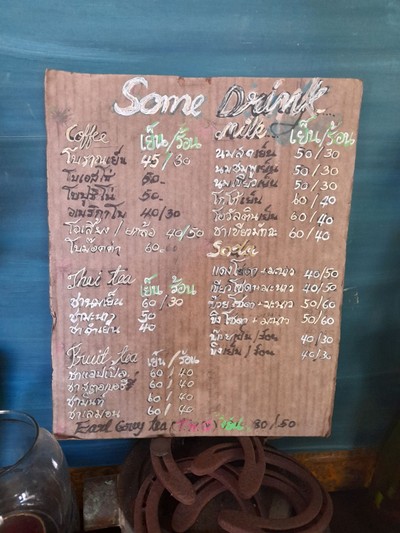 Some Drink
Coffee เย็น/ร้อน
โบราณเย็น 45/30
โบเอสโซ่ 50.-
50.-
อเมริกาโน 40/30
โอเลี้ยง / ยกล้อ 40/50
โบม็อคค่า 60.-
Thai tea เย็น ร้อน
ชานมเย็น 60/30
ชามะนาว 50
ชาดำเย็น 40
Fruit tea เย็น/ร้อน
ชาแอปเปิ้ล 60/40
ชาสตอเบอรี่ 60/40
ชามิ้นท์ 60/40
ชาเลมอน 60/40
milk เย็น/ร้อน
นมสดเย็น 50/30
นมชมพูเย็น 50/30
นมเขียวเย็น 50/30
โกโก้เย็น 60/40
โอวัลตินเย็น 60/40
ชาเขียวมัทฉะ 60/40
Soda
แดงโซดา+มะนาว 40/50
เขียวโซดา+มะนาว 40/50
บ๊วยโซดา+มะนาว 50/60
ขิงโซดา+มะนาว 50/60
เย็น/ร้อน 40/30
ขิงเย็น/ร้อน 40/30
Earl Grey tea 80/50